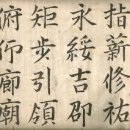 指薪修祐
永綏吉邵
矩步引領
俯仰廊廟